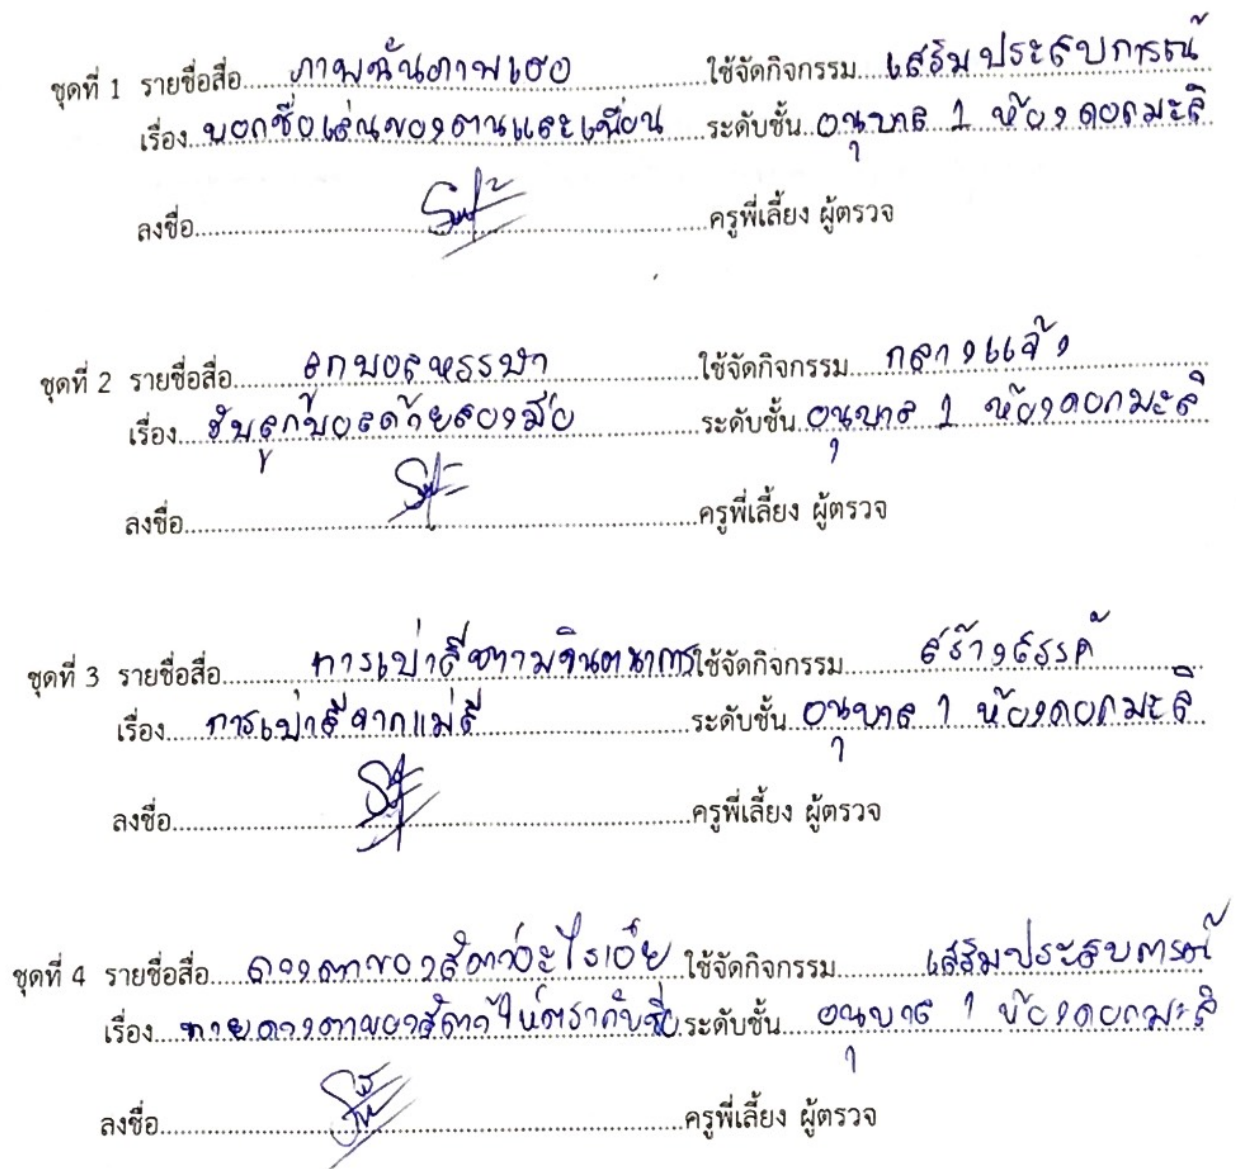 ชุดที่ 1 รายชื่อสื่อ ภาพฉันภาพเธอ ใช้จัดกิจกรรม เสริมประสบการณ์
เรื่อง บอกชื่อเล่นของตนและเพื่อน ระดับชั้น อนุบาล 1 ห้องดอกมะลิ
ลงชื่อ ครูพี่เลี้ยง ผู้ตรวจ
ชุดที่ 2 รายชื่อสื่อ ลูกบอลหรรษา ใช้จัดกิจกรรม กลางแจ้ง
เรื่อง รับลูกบอลด้วยสองมือ ระดับชั้น อนุบาล 1 ห้องดอกมะลิ
ลงชื่อ ครูพี่เลี้ยง ผู้ตรวจ
ชุดที่ 3 รายชื่อสื่อ การเป่าสีตามจินตนาการ ใช้จัดกิจกรรม สร้างสรรค์
เรื่อง การเป่าสีจากแม่สี ระดับชั้น อนุบาล 1 ห้องดอกมะลิ
ลงชื่อ ครูพี่เลี้ยง ผู้ตรวจ
ชุดที่ 4 รายชื่อสื่อ ดวงตาของสัตว์อะไรเอ่ย ใช้จัดกิจกรรม เสริมประสบการณ์
เรื่อง ทายดวงตาของสัตว์ให้ตรงกับชื่อ ระดับชั้น อนุบาล 1 ห้องดอกมะลิ
ลงชื่อ ครูพี่เลี้ยง ผู้ตรวจ